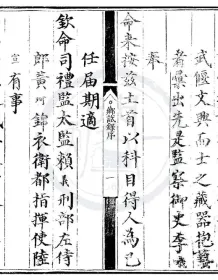 武偃文興而士之藏器抱藝
者彙出先是監察御史李
奉
命来按茲土首以科目得人為己
鄉試錄序
任届期適
欽命司禮監太監賴義刑部左侍
郎黃珂錦衣衛都指揮使陸
宣有事